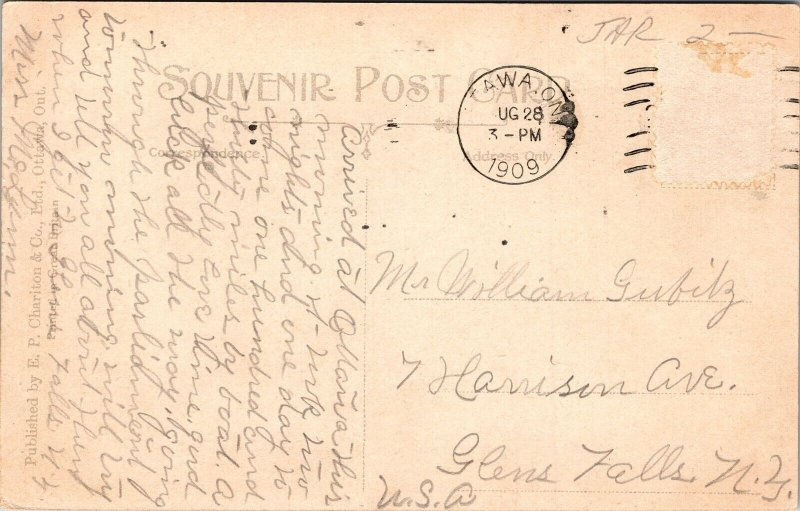 JAR 2—
SOUVENIR POST CARD
Correspondence
Address Only
TAWA, ON
UG 28
3-PM
1909
Arrived at Ottawa this
morning. it took two
nights and one day to
come one hundred and
seventy miles by boat. a
perfectly fine time, good
luck all the way. going
through the parliament
tomorrow morning will try
and tell you all about things
when I get Glens Falls N.Y.
Published by E. P. Charlton & Co., Ltd., Ottawa, Ont.
Printed in Great Britain
Mr William Gubitz
7 Harrison Ave.
Glens Falls. N.Y.
U.S.A